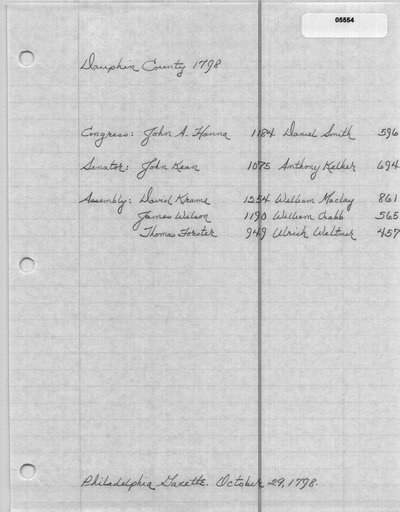 05554
Dauphin County 1798
Congress: John A. Hanna 1184 Daniel Smith 596
Senator: John Kean 1075 Anthony Kelker 694
Assembly: David Krame 1254 William Maclay 861
James Wilson 1190 William Crabb 565
Thomas Forster 949 Ulrich Weltner 457
Philadelphia Gazette. October 29, 1798.